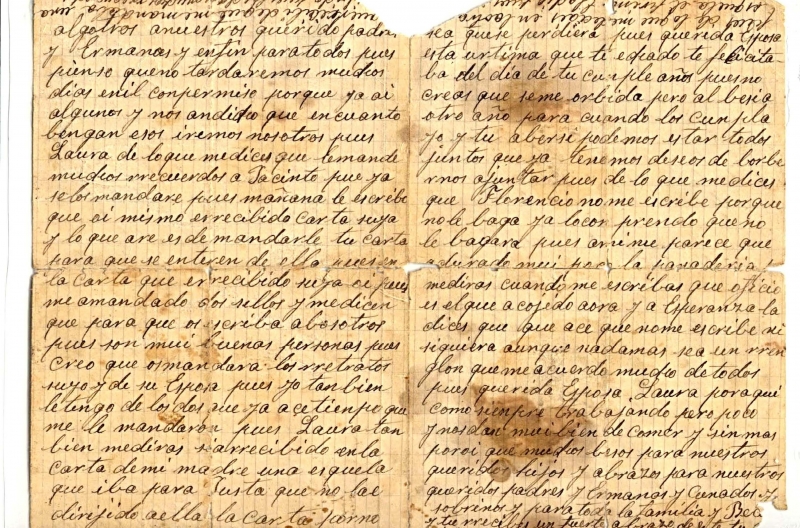 algotros anuestros querido padres
y Ermanas y enfin para todos pues
pienso queno tardaremos muchos
dias enil conpermiso porque ya ai
algunos y nos andicho que encuanto
bengan esos iremos nosotros pues
Laura de loque medices que lemande
muchos rrecuerdos a Jacinto pue ya
selos mandare pues mañana le escribe
que oi mismo errecibido carta suya
y lo que are es de mandarle tu carta
para que se enteren de ella pues en
la carta que errecibido suya oi pues
me amandado dos sellos y medicen
que para que os escriba abosotros
pues son mui buenas personas pues
creo que osmandara los rretratos
suyo y de su Esposa pues yo tanbien
letengo de los dos que ya acetienpo que
me le mandaron pues Laura tan
bien mediras siarrecibido enla
carta demi madre una esquela
que iba para Justa que no lae
dirijido aella la carta porno
sea quese perdiera pues querida Esposa
esta urtima que ti echado te felicita
ba del dia de tu cunple años pues no
creas que seme orbida pero al besia
otro año para cuando los cunpla
yo y tu abersi podemos estar todos
juntos que ya tenemos deseos de borbe
rnos ajuntar pues de lo que medices
que Florencio no me escribe porque
nole baga ya locon prendo que no
le bagara pues amime parece que
adurado mui poco la panaderia
mediras cuando me escribas que oficio
es el que acojido aora y a Esperanza la
dices que que ace que nome escribe ni
siquiera aunque nadamas sea un rren
glon que me acuerdo mucho de todos
pues querida Esposa Laura poraqui
como sienpre trabajando pero poco
y nos dan mui bien de comer y sin mas
poroi que muchos besos para nuestros
queridos hijos y abrazos para nuestros
queridos padres y Ermanas y Cunados y
sobrinos y para toda la familia y
y tu rrecibes un fuerte abrazo de